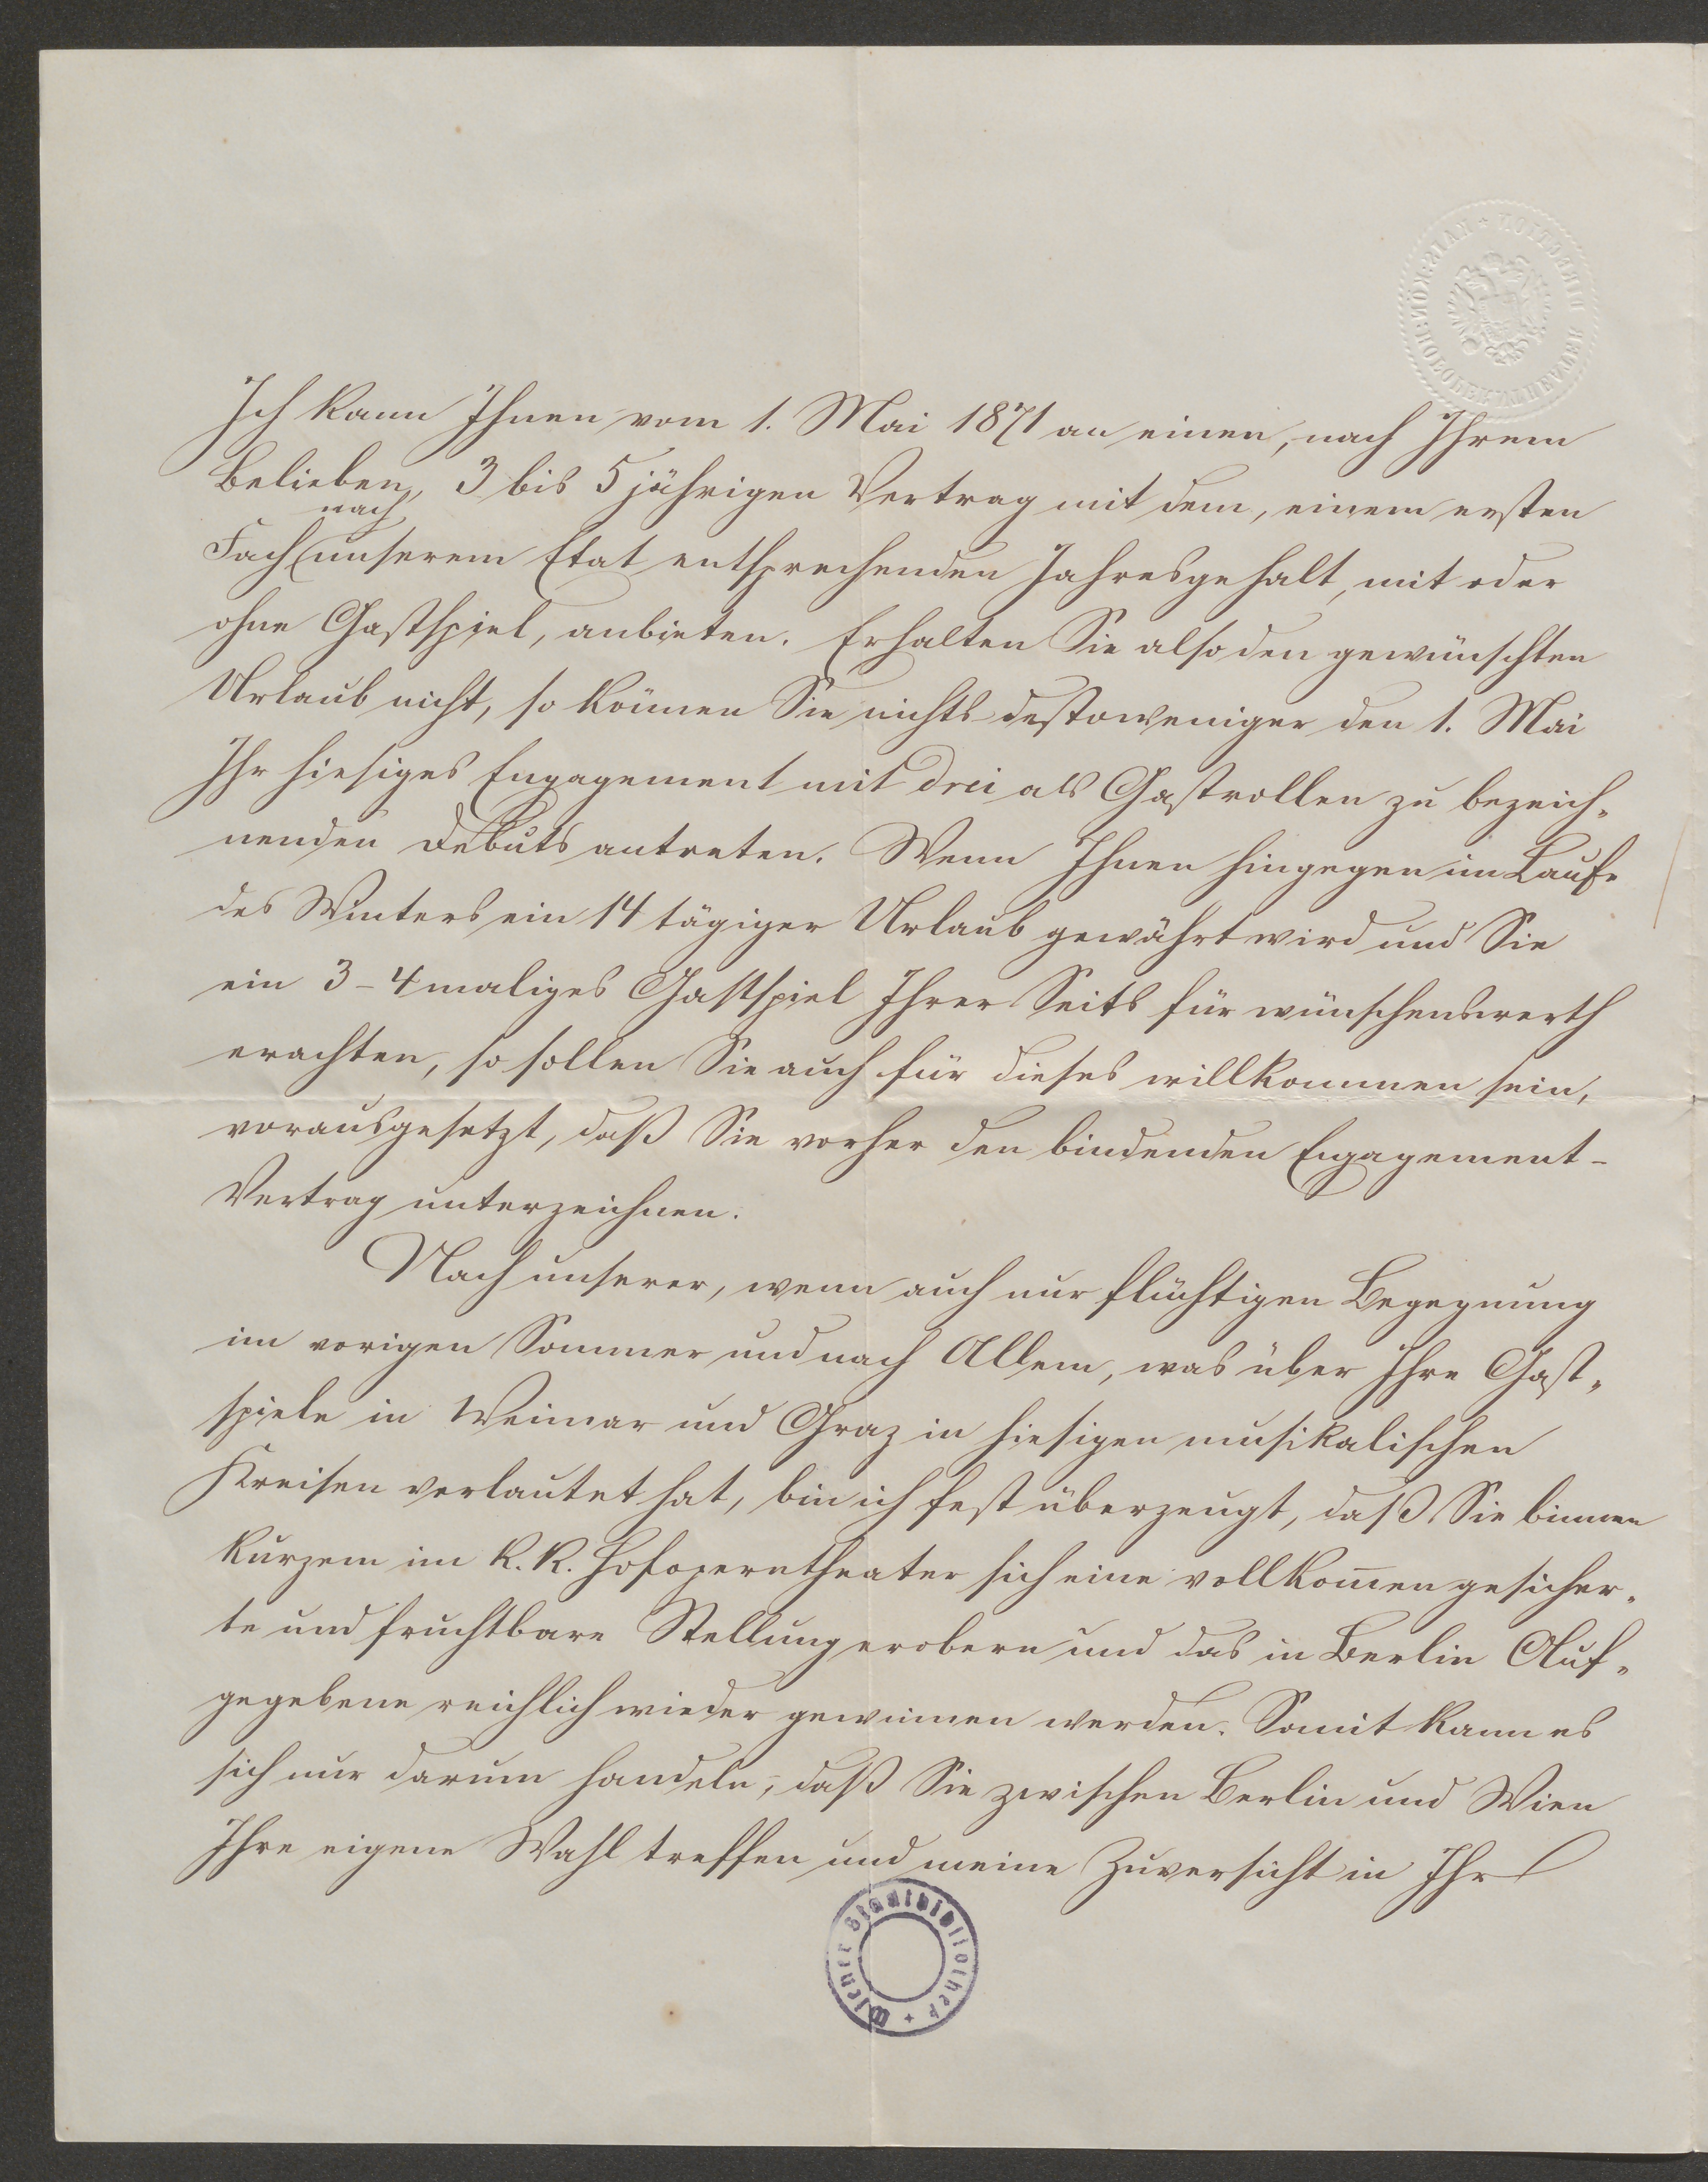 Ich kann Ihnen vom 1. Mai 1871 an einen, nach Ihrem
Belieben, 3 bis 5 jährigen Vertrag mit dem, einem ersten
nach
Fach unserem Etat entsprechenden Jahresgehalt, mit oder
ohne Gastspiel, anbieten. Erhalten Sie also den gewünschten
Urlaub nicht, so können Sie nichts destoweniger den 1. Mai
Ihr hiesiges Engagement mit drei als Gastrollen zu bezeich-
nenden Debuts antreten. Wenn Ihnen hingegen im Laufe
des Winters ein 14 tägiger Urlaub gewährt wird und Sie
ein 3-4 maliges Gastspiel Ihrer Seits für wünschenswerth
erachten, so sollen Sie auch für dieses willkommen sein,
vorausgesetzt, daß Sie vorher den bindenden Engagement-
Vertrag unterzeichnen.
Nach unserer, wenn auch nur flüchtigen Begegnung
im vorigen Sommer und nach Allem, was über Ihre Gast-
spiele in Weimar und Graz in hiesigen musikalischen
Kreisen verlautet hat, bin ich fest überzeugt, daß Sie binnen
Kurzem im K. K. Hofoperntheater sich eine vollkom̄en gesicher-
te und fruchtbare Stellung erobern und das in Berlin Auf-
gegebene reichlich wieder gewinnen werden. Somit kann es
sich nur darum handeln, daß Sie zwischen Berlin und Wien
Ihre eigene Wahl treffen und meine Zuversicht in Ihr
Wiener Stadtbibliothek